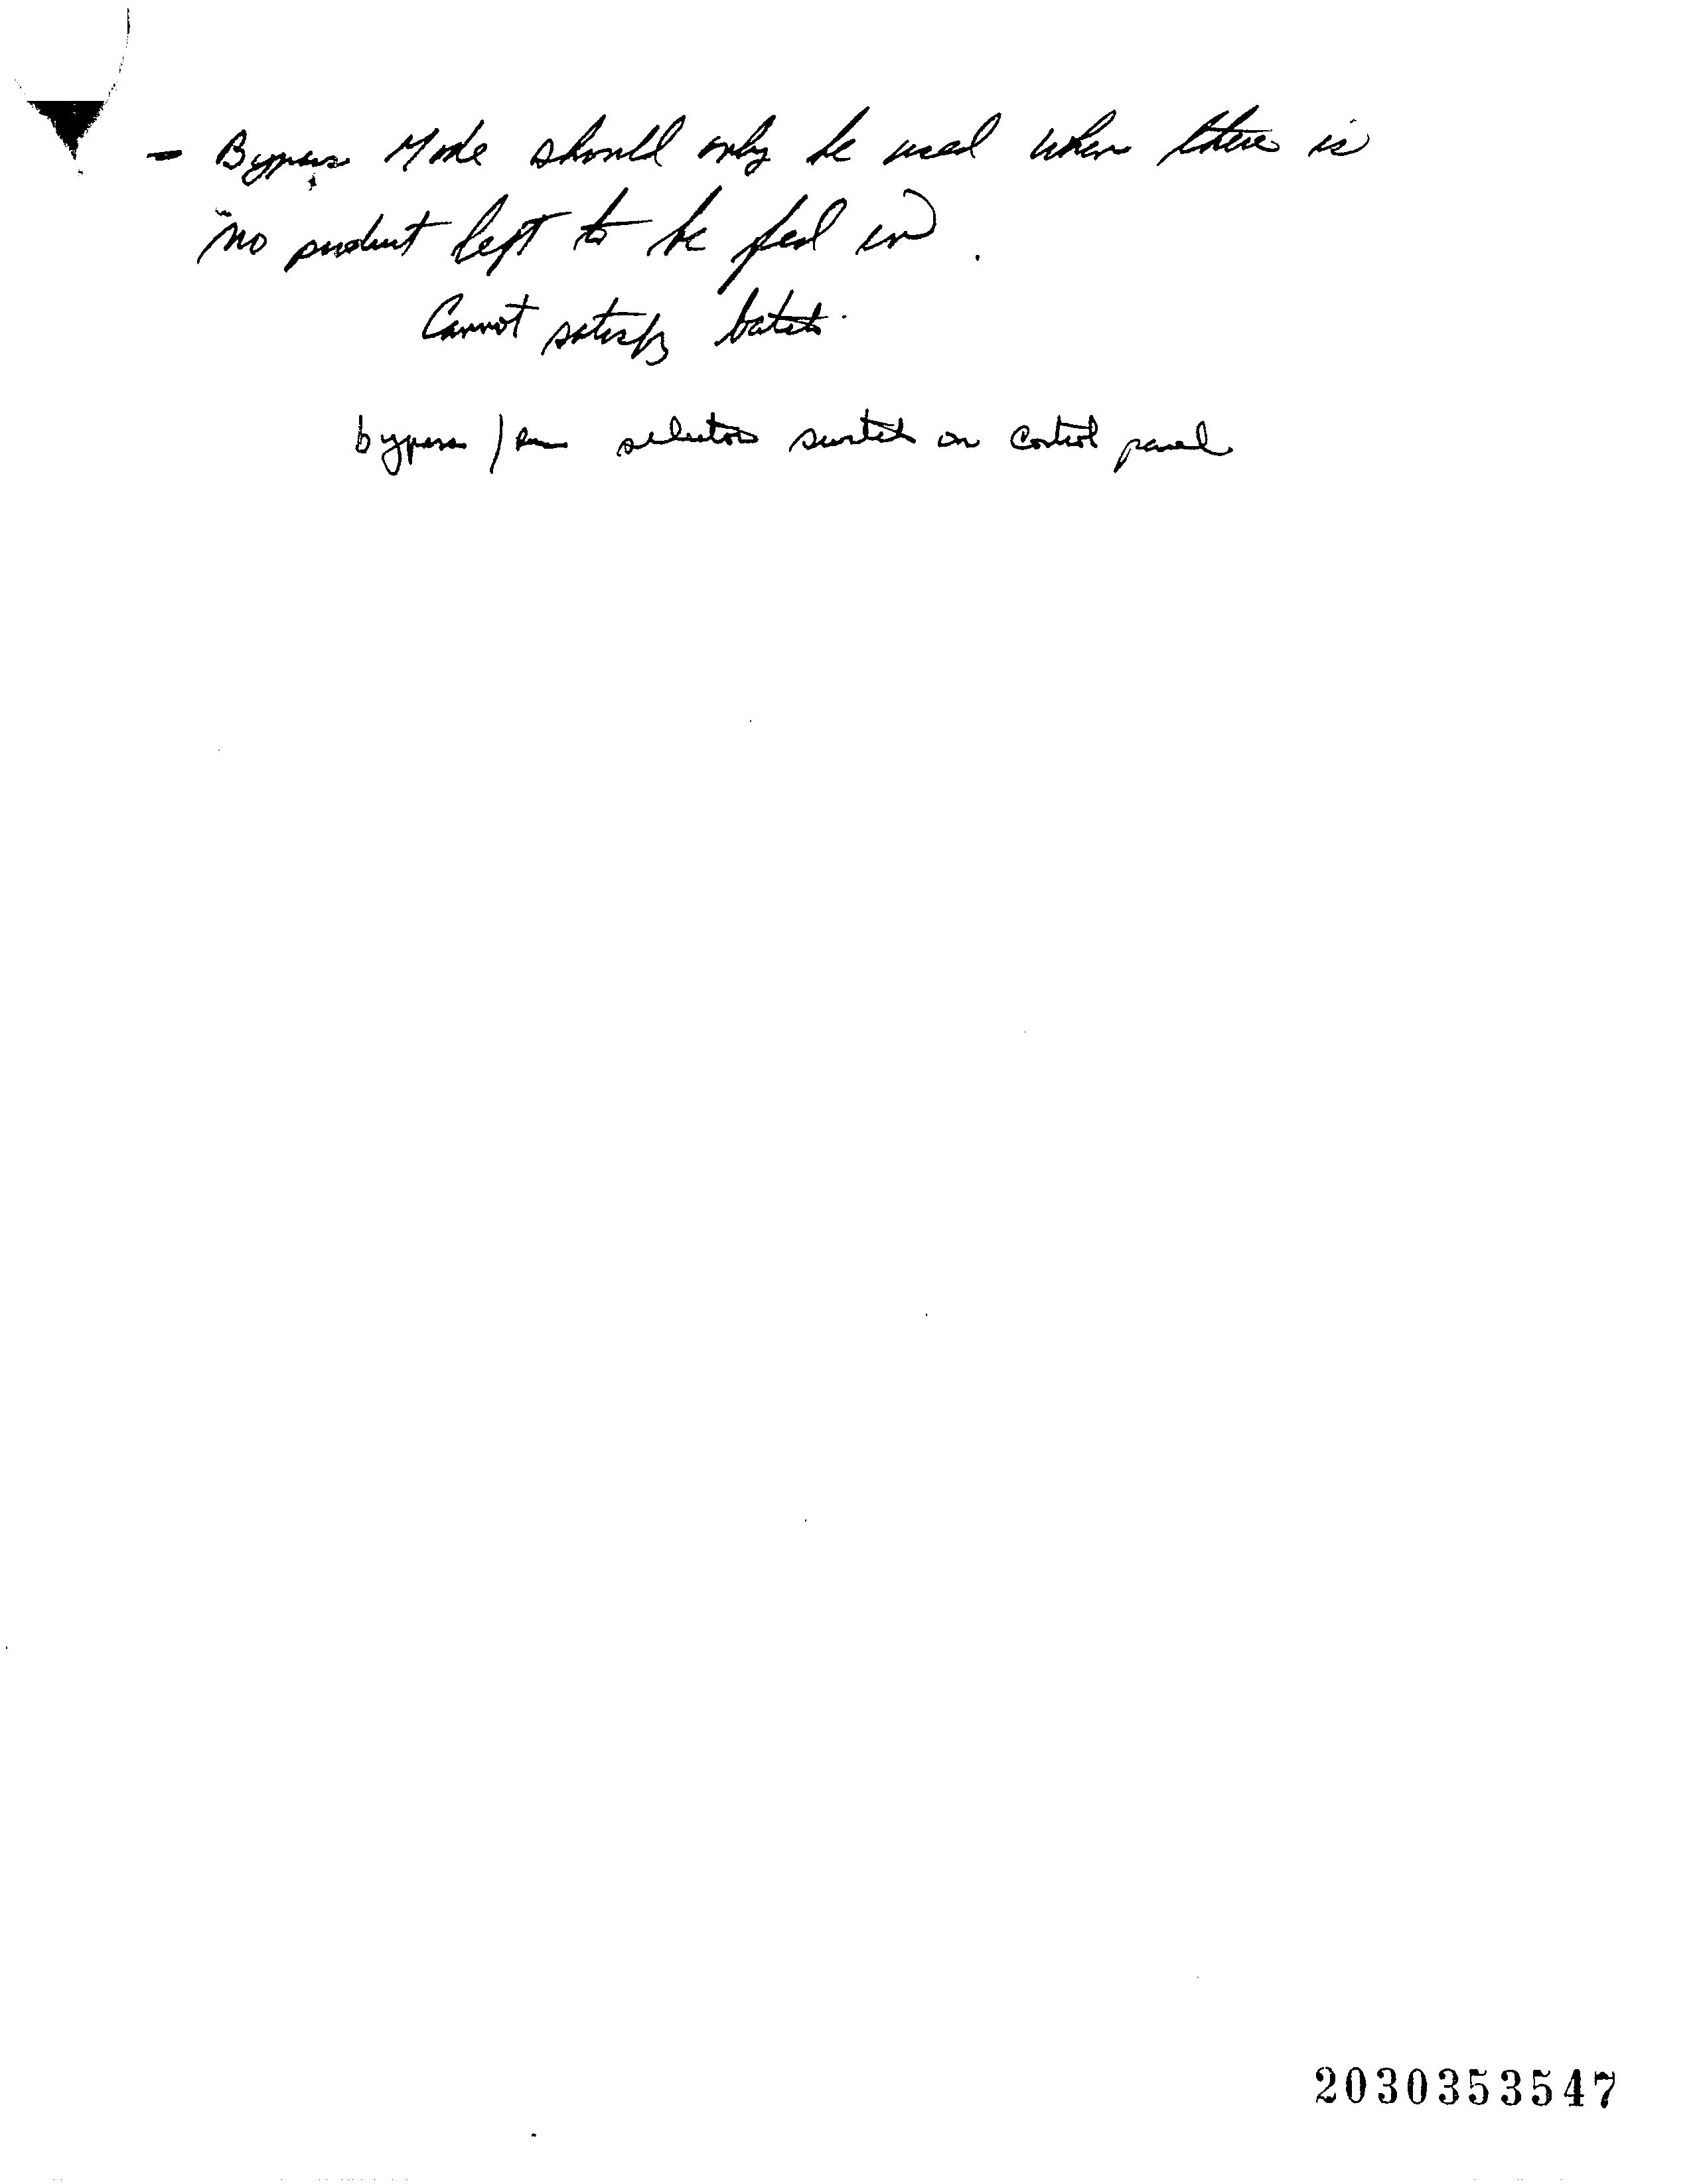 - Bypass Mode should only be used when there is
no product left to be fed in.
Cannot satisfy batch.
bypass / run selector switch on control panel
2030353547